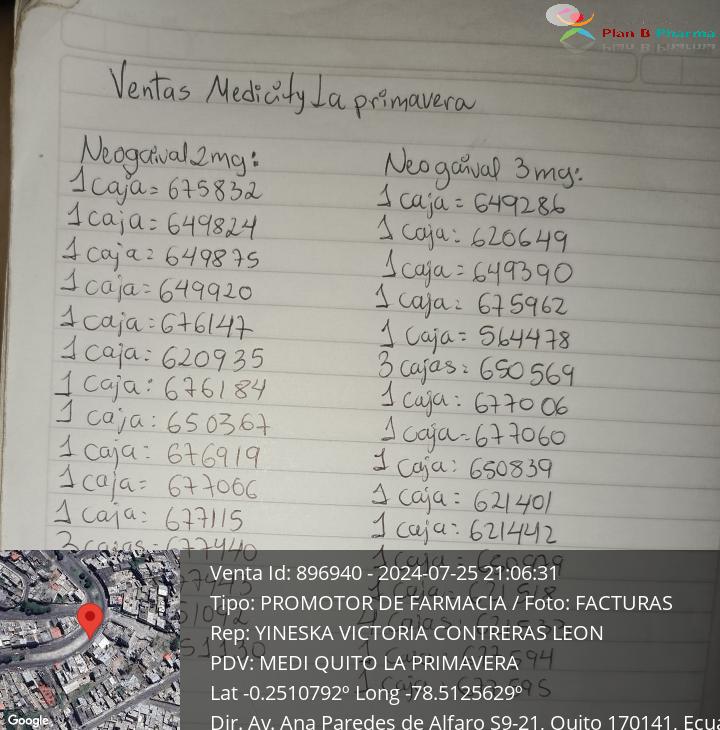 Plan B Pharma
Ventas Medicity La primavera
Neogaival 2mg:
1 caja = 675832
1 caja = 649824
1 caja = 649875
1 caja = 649920
1 caja = 676147
1 caja: 620935
1 caja: 676184
1 caja: 650367
1 caja: 676919
1 caja = 677066
1 caja: 677115
3 cajas = 677440
Neogaival 3mg:
1 caja = 649286
1 caja: 620649
1 caja = 649390
1 caja: 675962
1 caja = 564478
3 cajas: 650569
1 caja: 677006
1 caja = 677060
1 caja: 650839
1 caja: 621401
1 caja: 621442
Venta Id: 896940 - 2024-07-25 21:06:31
Tipo: PROMOTOR DE FARMACIA / Foto: FACTURAS
Rep: YINESKA VICTORIA CONTRERAS LEON
PDV: MEDI QUITO LA PRIMAVERA
Lat -0.2510792º Long -78.5125629º
Dir. Av. Ana Paredes de Alfaro S9-21, Quito 170141, Ecua
Google